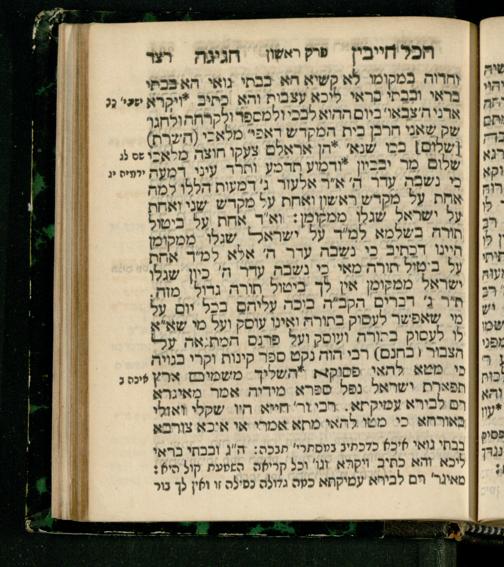 הכל חייבין פרק ראשון חגיגה רצד
וחדוה במקומו לא קשיא הא בבתי גואי הא בבתי
בראי ובבתי בראי ליכא עצבות והא כתיב *ויקרא ישעי' כב
אדני ה' צבאו' ביום ההוא לבכי ולמספד ולקרחה ולחגו'
שק שאני חרבן בית המקדש דאפי' מלאכי (השרת)
[שלום] בכו שנא' *הן אראלם צעקו חוצה מלאכי שם לג
שלום מר יבכיון *ודמוע תדמע ותרד עיני דמעה ירמיה יג
כי נשבה עדר ה' א"ר אלעזר ג' דמעות הללו למה
אחת על מקדש ראשון ואחת על מקדש שני ואחת
על ישראל שגלו ממקומן: וא"ד אחת על ביטול
תורה בשלמא למ"ד על ישראל שגלו ממקומן
היינו דכתיב כי נשבה עדר ה' אלא למ"ד אחת
על ביטול תורה מאי כי נשבה עדר ה' כיון שגלו
ישראל ממקומן אין לך ביטול תורה גדול מזה.
ת"ר ג' דברים הקב"ה בוכה עליהם בכל יום על
מי שאפשר לעסוק בתורה ואינו עוסק ועל מי שא"א
לו לעסוק בתורה ועוסק ועל פרנס המתגאה על
הצבור (בחנם) רבי הוה נקט ספר קינות וקרי בגויה
כי מטא להאי פסוקא *השליך משמים ארץ איכה ב
תפארת ישראל נפל ספרא מידיה אמר מאיגרא
רם לבירא עמיקתא. רבי ור' חייא היו שקלי ואזלי
באורחא כי מטו להאי מתא אמרי אי איכא צורבא
בבתי גואי איכא כדכתיב במסתרי' תבכה: ה"ג ובבתי בראי
ליכא והא כתיב ויקרא וגו' וכל קריאה השמעת קול היא:
מאיגר' רם לבירא עמיקתא כמה גדולה נפילה זו ואין לך בור